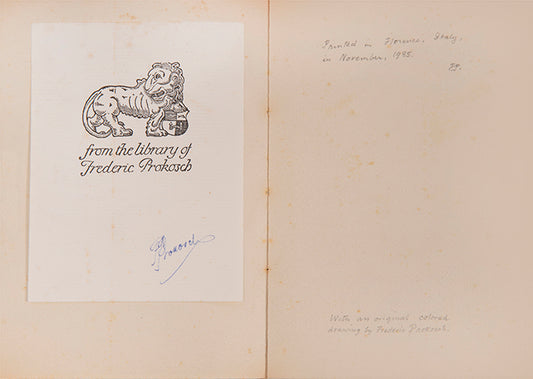 from the library of
Frederic Prokosch
Prokosch
Printed in Florence, Italy,
in November, 1935.
F.P.
With an original colored
drawing by Frederic Prokosch.